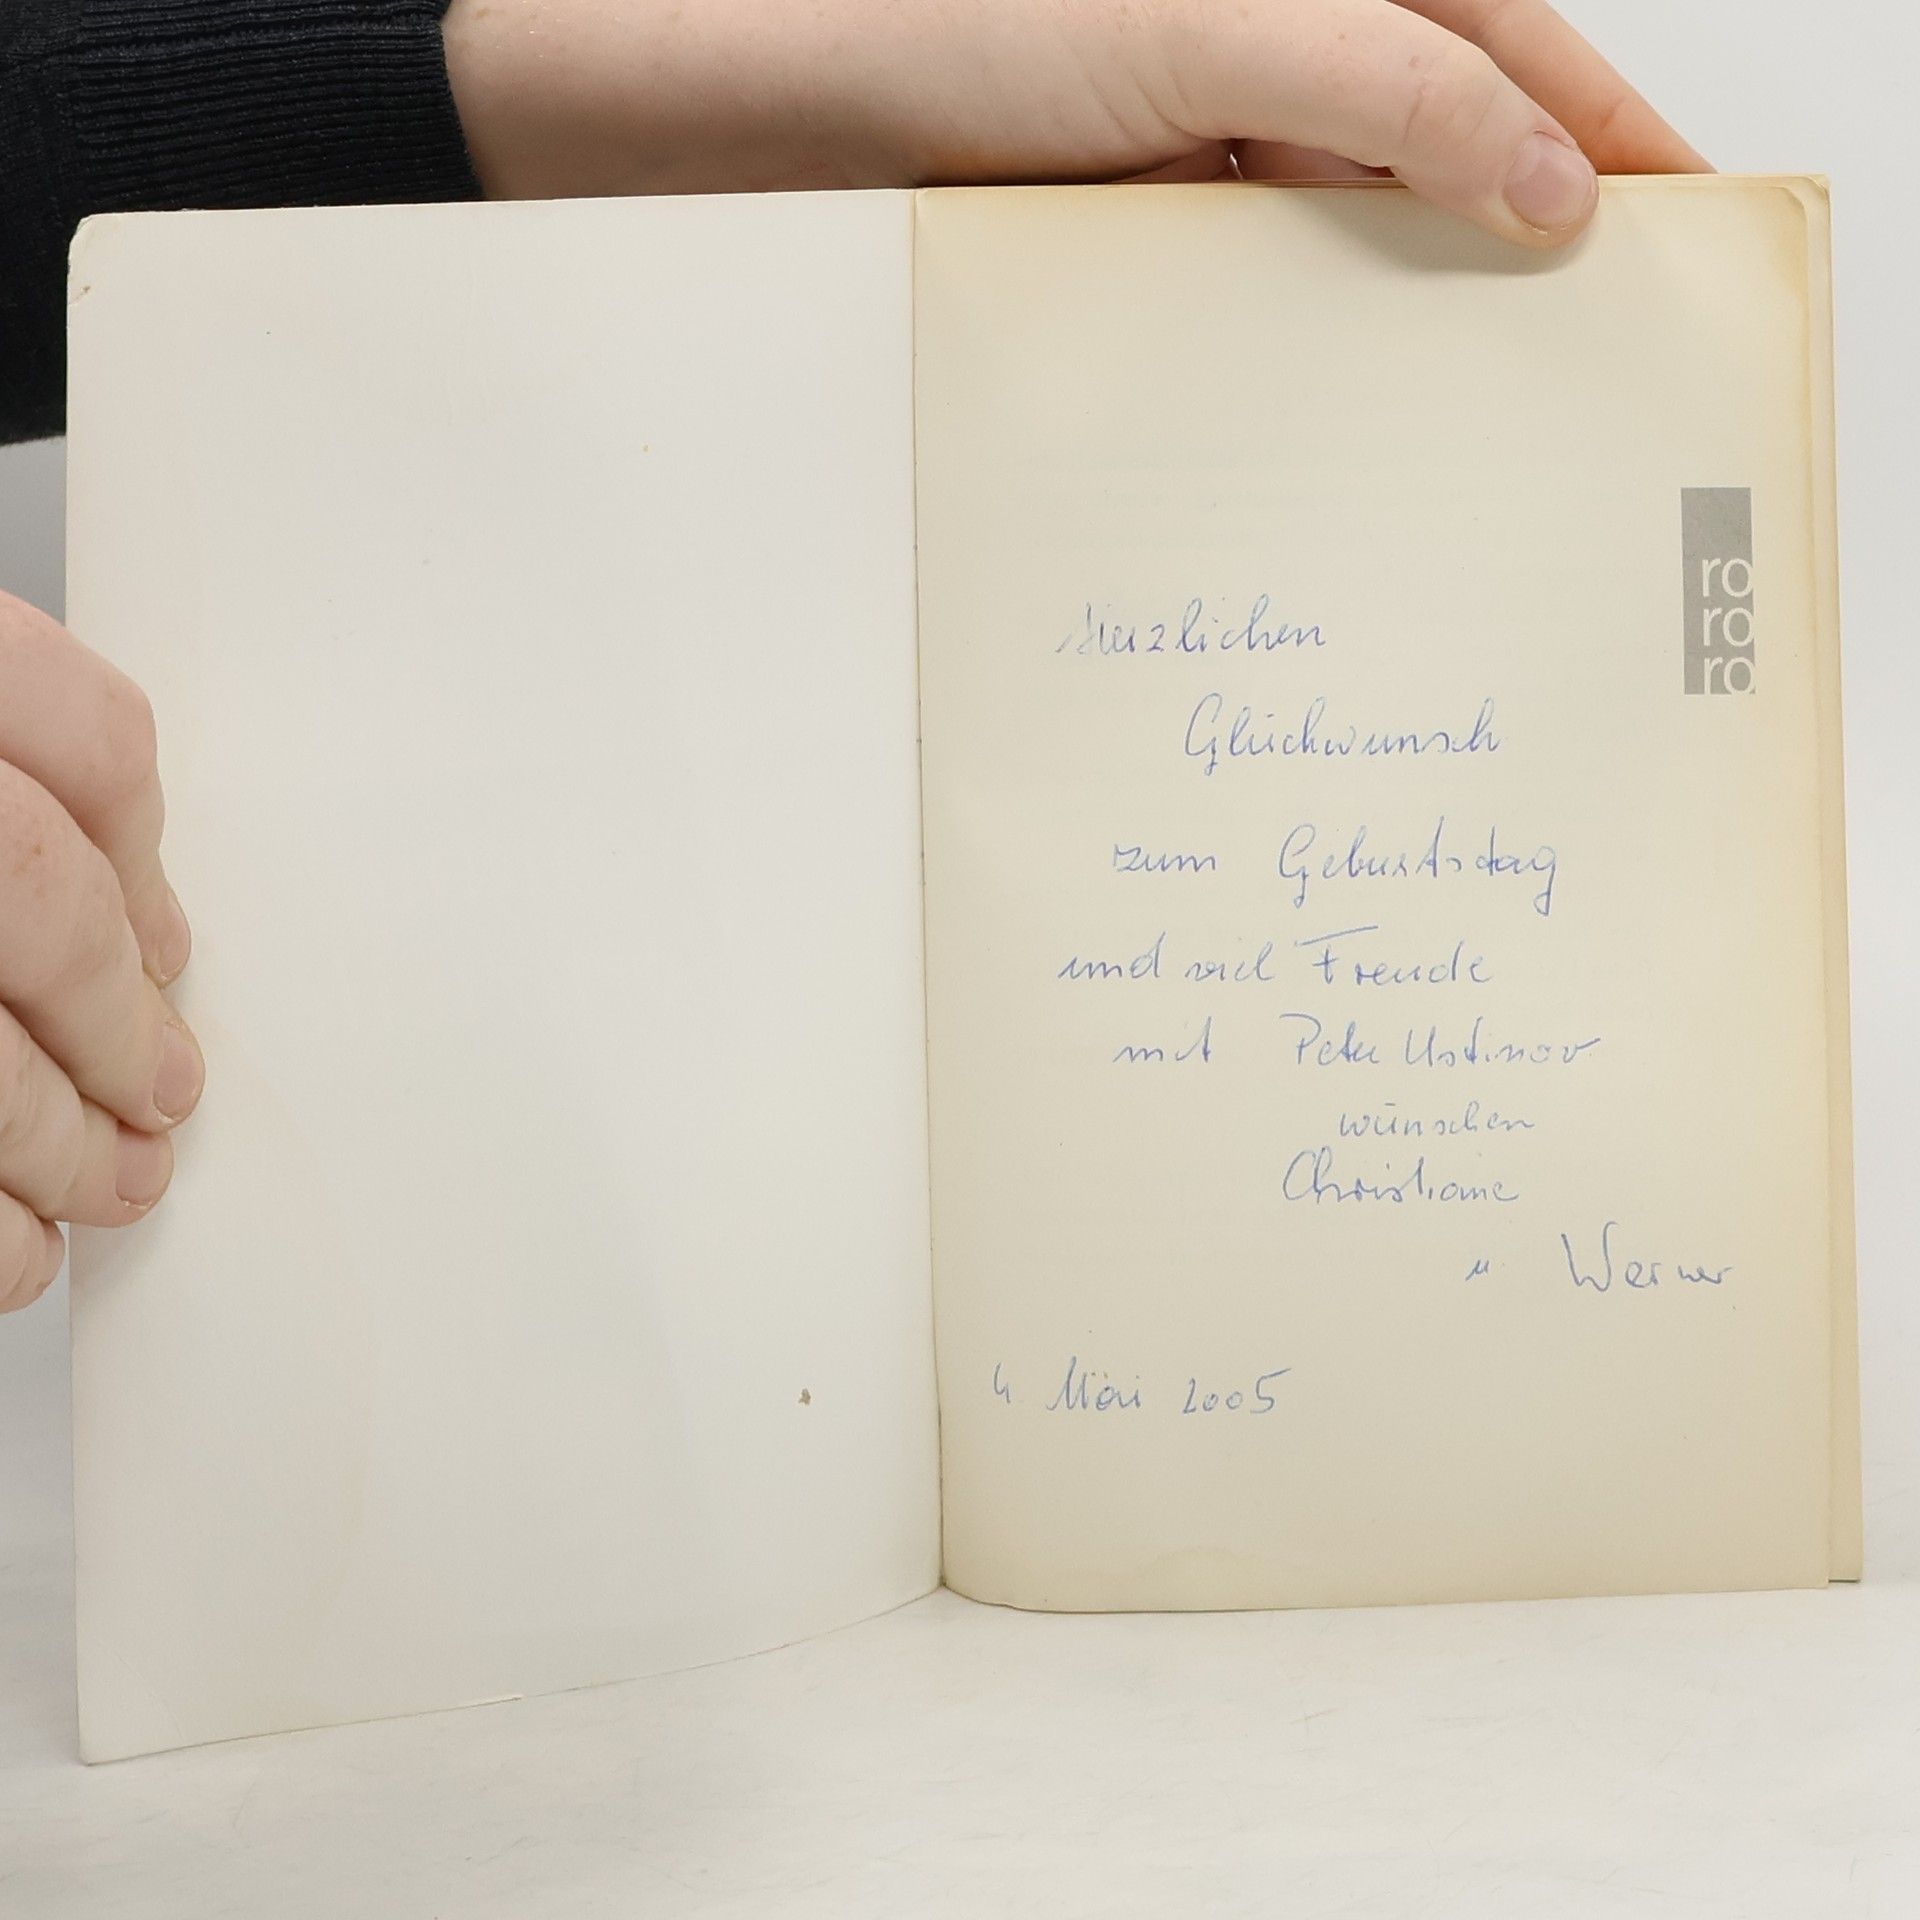 ro
ro
ro
Herzlichen
Glückwunsch
zum Geburtstag
und viel Freude
mit Peter Ustinov
wünschen
Christiane
u. Werner
4. Mai 2005